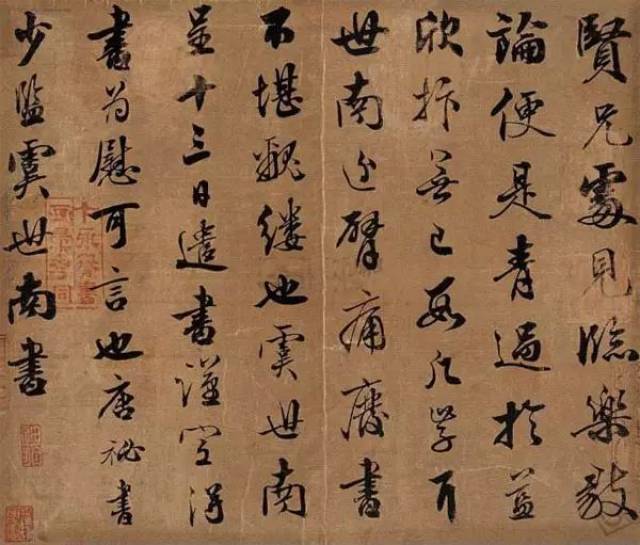 賢兄處見臨樂毅
論便是青過於藍
欣抃無已數凡學耳
世南近臂痛廢書
不堪覶縷也虞世南
呈十三日遣書謹空得
書為慰可言也唐祕書
少監虞世南書